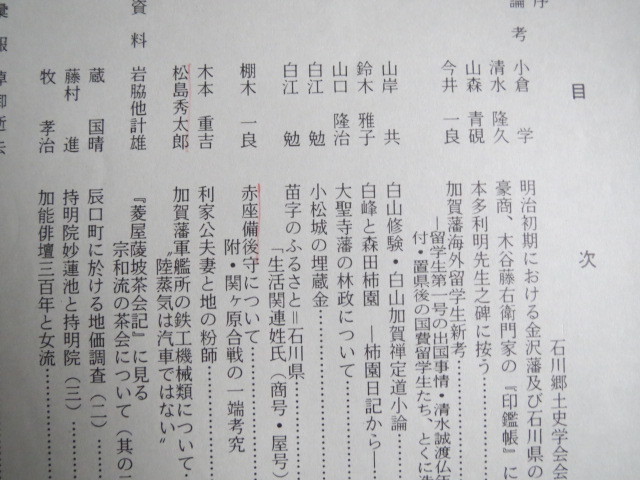 石川郷土史学会会
目　次
序
論　考
小倉　学　明治初期における金沢藩及び石川県の
清水　隆久　豪商、木谷藤右衛門家の『印鑑帳』に
山森　青硯　本多利明先生之碑に按う……
今井　一良　加賀藩海外留学生新考……
―留学生第一号の出国事情・清水誠渡仏年
付・置県後の国費留学生たち、とくに
山岸　共　白山修験・白山加賀禅定道小論……
鈴木　雅子　白峰と森田柿園　―柿園日記から―
山口　隆治　大聖寺藩の林政について……
白江　勉　小松城の埋蔵金……
白江　勉　苗字のふるさと＝石川県……
「生活関連姓氏（商号・屋号）
棚木　一良　赤座備後守について……
附・関ヶ原合戦の一端考究
木本　重吉　利家公夫妻と地の粉師……
松島秀太郎　加賀藩軍艦所の鉄工機械類について・
〝陸蒸気は汽車ではない〟
資　料
岩脇他計雄　『菱屋蓙坡茶会記』に見る
宗和流の茶会について（其の二
蔵　国晴　辰口町に於ける地価調査（二）……
藤村　進　持明院妙蓮池と持明院（三）……
牧　孝治　加能俳壇三百年と女流……
彙　報